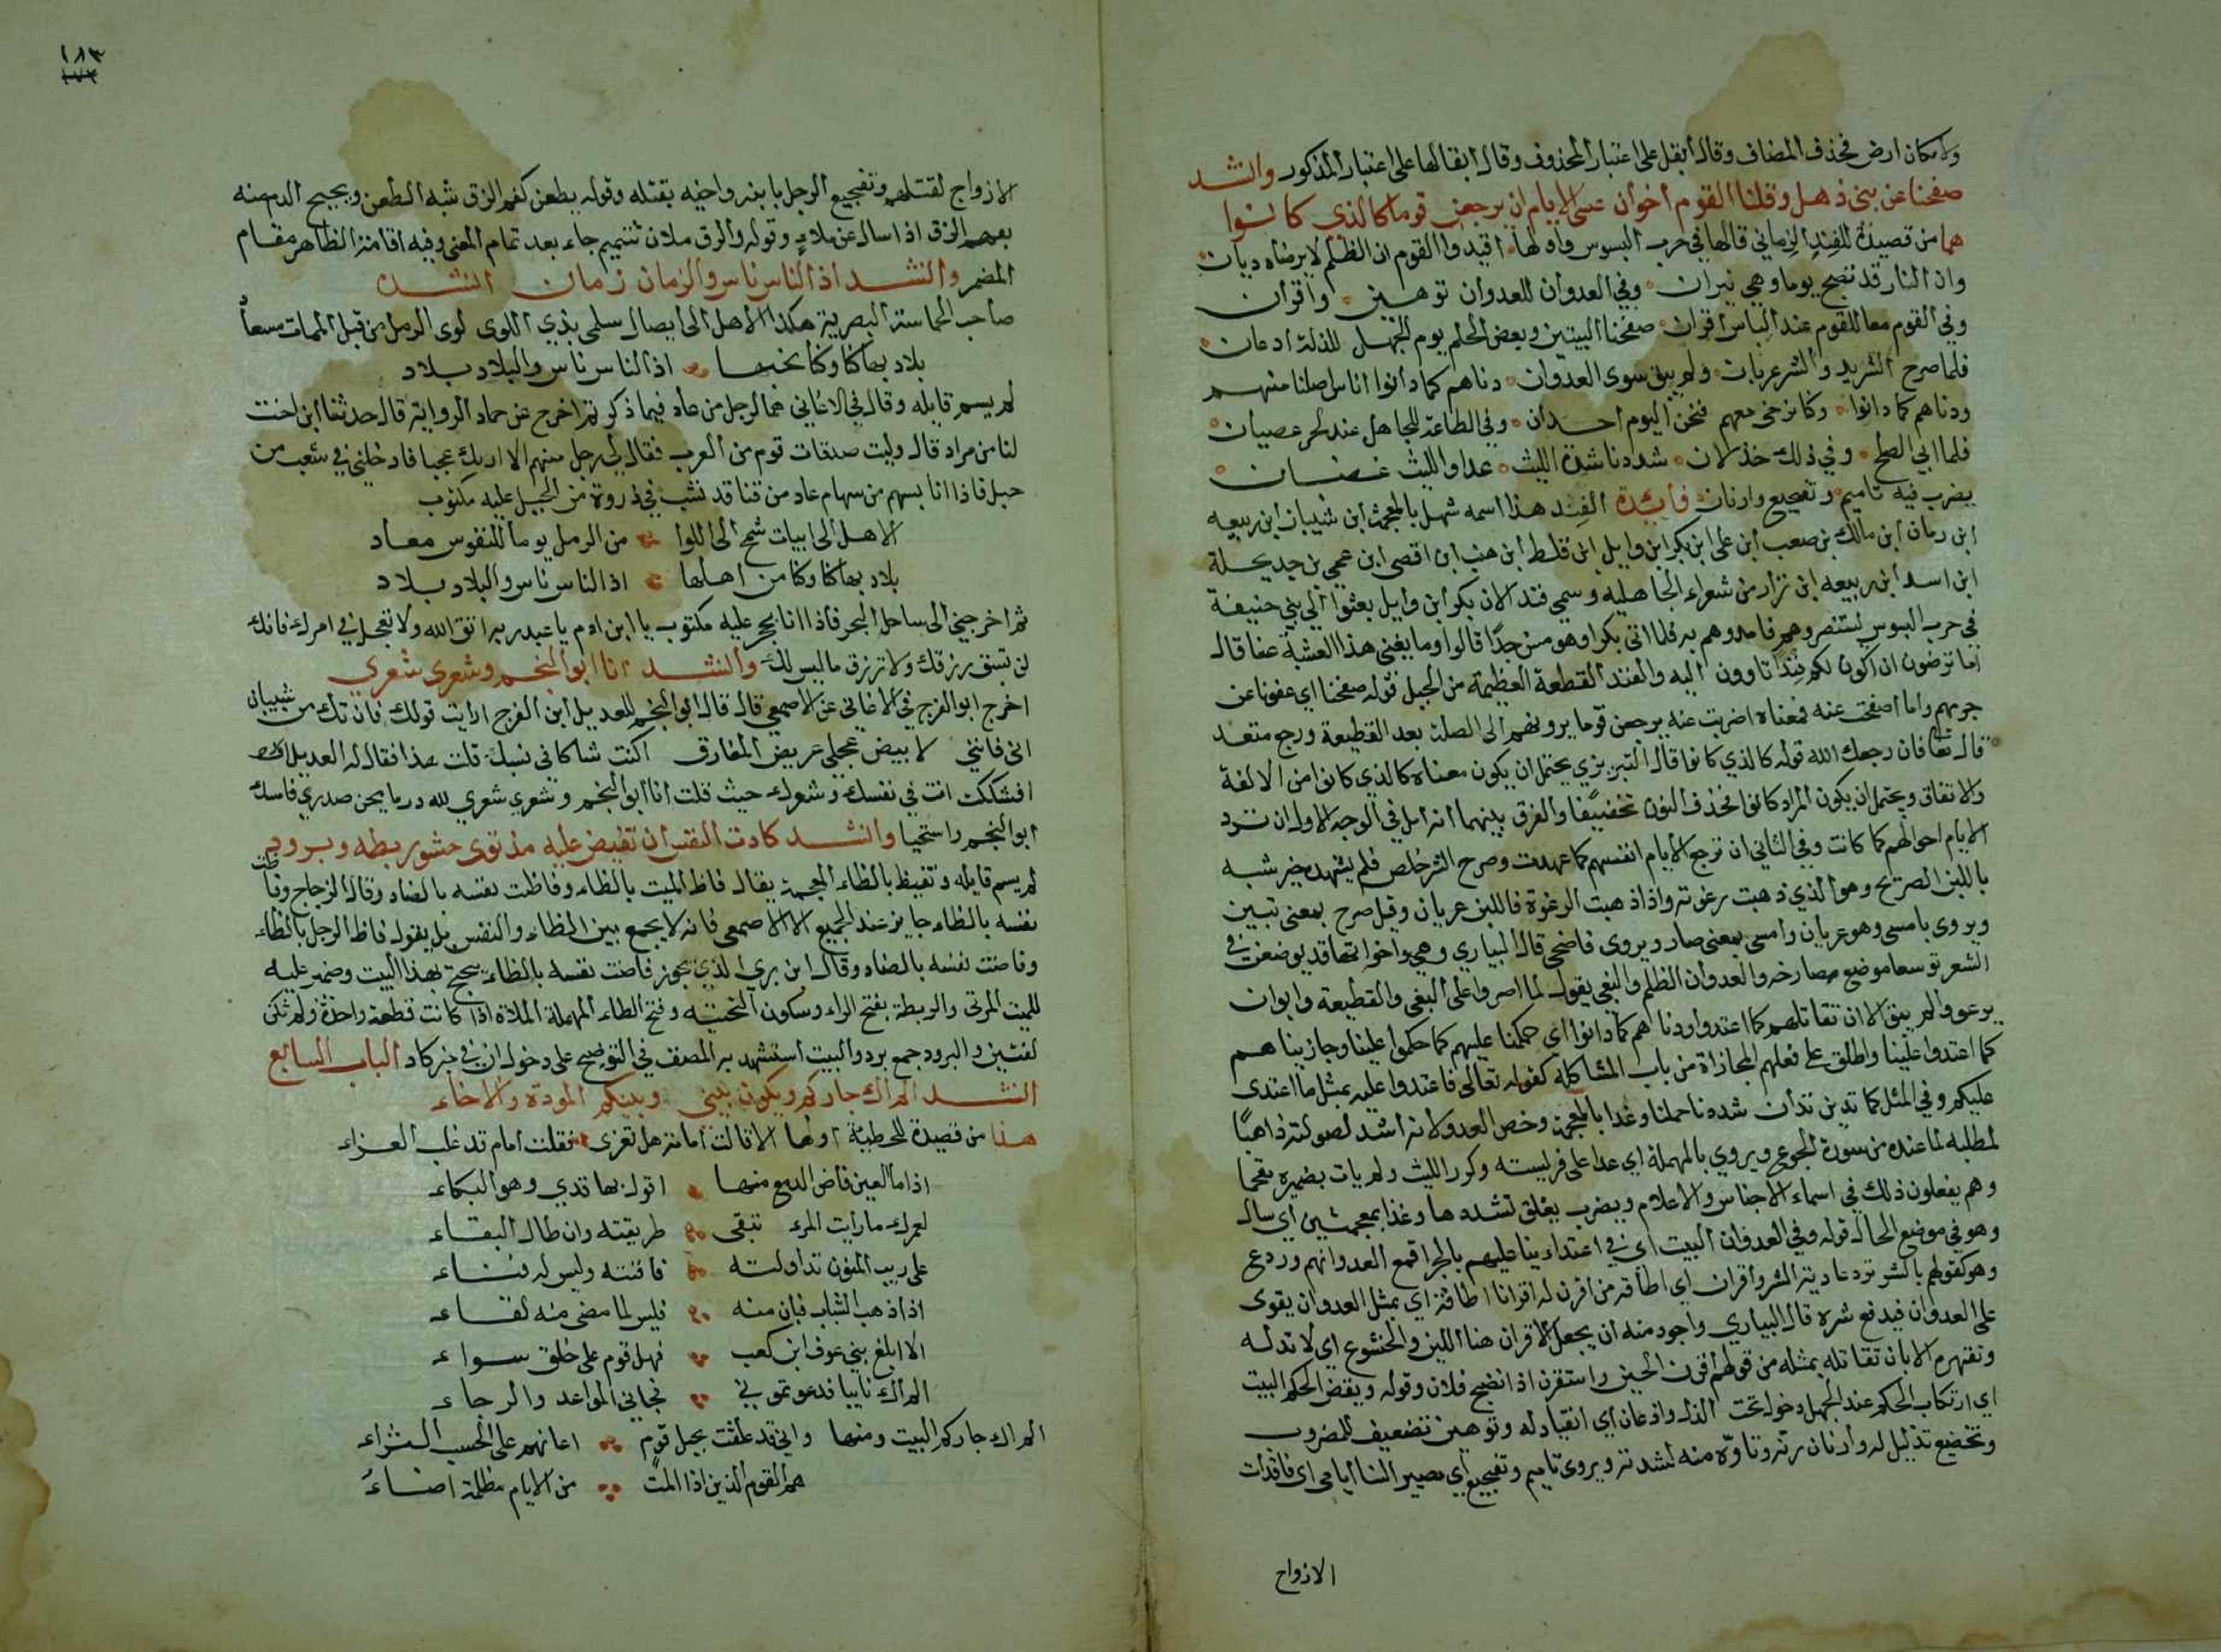 ولا مكان ارض فحذف المضاف وقال ابقل على اعتبار المحذوف وقال ابقالها على اعتبار المذكور وانشد
صفحنا عن بني ذهل وقلنا القوم اخوان عسى الايام ان يرجعن قوما كالذي كانوا
هما من قصيدة للفند الزماني قالها في حرب البسوس واولها اقيدوا القوم ان الظلم لا يرضاه ديان
وان النار قد تصبح يوما وهي نيران وفي العدوان للعدوان توهين واقران
وفي القوم معا للقوم عند الباس اقران صفحنا البيتين وبعض الحلم يوم الجهل للذلة ادعان
فلما صرح الشر يد والشر عريان ولم يبق سوى العدوان دناهم كما دانوا اناس اصلنا منهم
ودناهم كما دانوا وكنا نرى معهم فنحن اليوم احدان وفي الطاعة للجاهل عند الحر عصيان
فلما ابي الصلح وفي ذلك خذلان شددنا شدة الليث عدا والليث غضبان
بضرب فيه تاميم وتفجيع وارنان فائدة الفند هذا اسمه شهل بالمعجمة ابن شيبان ابن ربيعه
ابن زمان ابن مالك بن صعب ابن علي ابن بكر ابن وايل ابن قاسط ابن هنب ابن اقصى ابن عمي بن جديلة
ابن اسد ابن ربيعه ابن نزار من شعراء الجاهلية وسمي فند الان بكر ابن وايل بعثوا الى بني حنيفة
في حرب البسوس ليستنصروهم فامدوهم به فلما اتى بكرا وهو مسن جدا قالوا وما يغني هذا العشبة عنا قال
اما ترضون ان اكون لكم فندا تاوون اليه والفند القطعة العظيمة من الجبل قوله صفحنا اي عفونا عن
جرمهم واما اصفحت عنه فمعناه اضربت عنه يرجعن قوما يردونهم الى الصلة بعد القطيعة ورجع متعد
قال تعا فان رجعك الله قوله كالذي كانوا قال التبريزي يحتمل ان يكون معناه كالذي كانوا من الالفة
والاتفاق ويحتمل ان يكون المراد كانوا فحذف النون تخفيفا والفرق بينهما انه امل في الوجه الاول ان ترد
الايام احوالهم كما كانت وفي الثاني ان ترجع الايام انفسهم كما عهدت وصرح الشر خلص فلم يشبه خير شبه
باللبن الصريح وهو الذي ذهبت رغوته واذا ذهبت الرغوة فاللبن عريان وقيل صرح بمعنى تبين
ويروى بامسى وهو عريان وامسى بمعنى صار ويروى فاضحى قال البياري وهي واخواتها قد يوضعن في
الشعر توسعا موضع صار خر والعدوان الظلم والبغي يقول لما اصروا على البغي والقطيعة وابوان
يرعووا لم يبق الا ان نقاتلهم كما اعتدوا ودناهم كما دانوا اي حكمنا عليهم كما حكموا علينا وجازيناهم
كما اعتدوا علينا واطلق على فعلهم المجازاة من باب المشاكلة كقوله تعالى فاعتدوا عليه بمثل ما اعتدى
عليكم وفي المثل كما تدين تدان شددنا حملنا وغدا بالمعجمة وخص العدو لانه اشد لصولته ذاهبا
لمطلبه لما عنده من سورة الجوع ويروي بالمهملة اي عدا على فريسته وكرر الليث ولم يات بضميره تفخيما
وهم يفعلون ذلك في اسماء الاجناس والاعلام وبضرب يتعلق بشددها وغذا بمعجمتين اي سال
وهو في موضع الحال قوله وفي العدوان البيت اي في اعتداءينا عليهم بالجزا قمع العدوانهم وردع
وهو كقولهم بالشر ترد عادية الشر واقران اي اطاقة من اقرن له اقرانا اطاقة اي بمثل العدوان يقوى
على العدوان فيدفع شره قال البياري واجود منه ان يجعل الاقران هنا اللين والخشوع اي لا تذله
وتقهره الا بان تقاتله بمثله من قولهم اقرن الجبين واستقرن اذا نضج فلان وقوله وبعض الحكم البيت
اي ارتكاب الحكم عند الجهل دخول تحت الذل واذعان اي انقياد له وتوهين تضعيف للمضروب
وتخضيع تذليل له وارنان رنة وتاوه منه لشدته ويروى تاميم وتفجيع اي مصير النسا ايامى اي فاقدات
الازواج
١٨٣
١٧٣
الازواج لقتلهم وتفجيع الرجل بابنه واخيه بقتله وقوله بطعن كفم الزق شبه الطعن ويجيح الدم منه
بفم الزق اذا سال عن ملاء وقوله والزق ملان تتميم جاء بعد تمام المعنى وفيه اقامة الظاهر مقام
المضمر وانشد اذ الناس ناس والزمان زمان انشده
صاحب الحماسة البصرية هكذا الا هل الى ايصال سلمى بذي اللوى لوى الرمل من قبل الممات مسعاد
بلاد بها كنا وكنا نحبها اذ الناس ناس والبلاد بلاد
لم يسم قايله وقال في الاغاني هما لرجل من عاد فيما ذكر ثم اخرج عن حماد الرواية قال حدثنا ابن اخت
لنا من مراد قال وليت صدقات قوم من العرب فقال لي رجل منهم الا اريك عجبا فادخلني في شعب من
جبل فاذا انا بسهم من سهام عاد من قنا قد نشب في ذروة من الجبل عليه مكتوب
الا هل الى ابيات شمخ الى اللوا من الرمل يوما للنفوس معاد
بلاد بها كنا وكنا من اهلها اذ الناس ناس والبلاد بلاد
ثم اخرجني الى ساحل البحر فاذا انا بحجر عليه مكتوب يا ابن ادم يا عبد ربه اتق الله ولا تعجل في امرك فانك
لن تسبق رزقك ولا ترزق ما ليس لك وانشد انا ابو النجم وشعري شعري
اخرج ابو الفرج في الاغاني عن الاصمعي قال قال ابو النجم للعديل ابن الفرج ارايت قولك فان تك من شيبان
اني فانني لابيض عجلي عريض المفارق اكنت شاكا في نسبك قلت هذا فقال له العديل
افشككت انت في نفسك وشعرك حيث قلت انا ابو النجم وشعري شعري لله درما يجن صدري فامسك
ابو النجم واستحيا وانشد كادت النفس ان تفيض عليه مذ ثوى حشو ريطه وبرود
لم يسم قايله وتفيظ بالظاء المعجمة يقال فاظ الميت بالظاء وفاظت نفسه بالضاد وقال الزجاج وفاظت
نفسه بالظاء جايز عند الجميع الا الاصمعي فانه لا يجمع بين الظاء والنفس بل يقول فاظ الرجل بالظاء
وفاضت نفسه بالضاد وقال ابن بري الذي يجوز فاضت نفسه بالظاء يحتج بهذا البيت وضمير عليه
للميت المرثى والريطة بفتح الراء وسكون التحتيه وفتح الطاء المهملة الملاة اذا كانت قطعة واحدة ولم تكن
لفقتين والبرود جمع برد والبيت استشهد به المصنف في التوضيح على دخول ان في خبر كاد الباب السابع
انشد الم اك جاركم ويكون بيني وبينكم المودة والاخاء
هذا من قصيدة للحطيئة اولها الا قالت امامة هل تعزى فقلت امام قد غلب العزاء
اذا ما العين فاض الدمع منها اقول بها قذي وهو البكاء
لعمرك ما رايت المرء تبقى طريقته وان طال البقاء
على ريب المنون تداولته فافنته وليس له فناء
اذا ذهب الشباب فبان منه فليس لما مضى منه لقاء
الا ابلغ بني عوف ابن كعب فهل قوم على خلق سواء
الم اك نايبا فدعوتموني فجاني المواعد والرجاء
الم اك جاركم البيت ومنها واني قد علقت بحبل قوم اعانهم على الحسب الثراء
هم القوم الذين اذا المت من الايام مظلمة اضاءُ